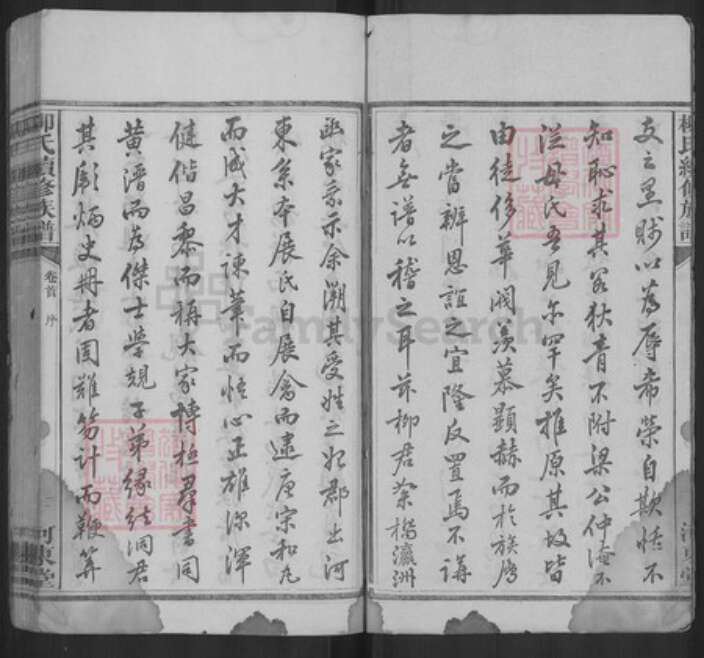 支之黑賤以為辱希榮自欺恬不
知恥求其若狄青不附梁公仲淹不
從母氏吾見亦罕矣推原其故皆
由徒侈華閥羨慕顯赫而於族属
之當辨恩誼之宜隆反置焉不講
者無譜以稽之耳茲柳君榮橋瀛洲
家示余溯其受姓之始郡出河
東系本展氏自展禽而逮唐宋和丸
而成大才諫筆而悟心正雄深渾
健偕昌黎而稱大家博極群書同
黃潛而為傑士學規子弟緣結洞君
其彪炳史冊者固難籌計而鞭算
柳氏續修族譜
卷首 序
河東堂
柳氏續修族譜
FamilySearch